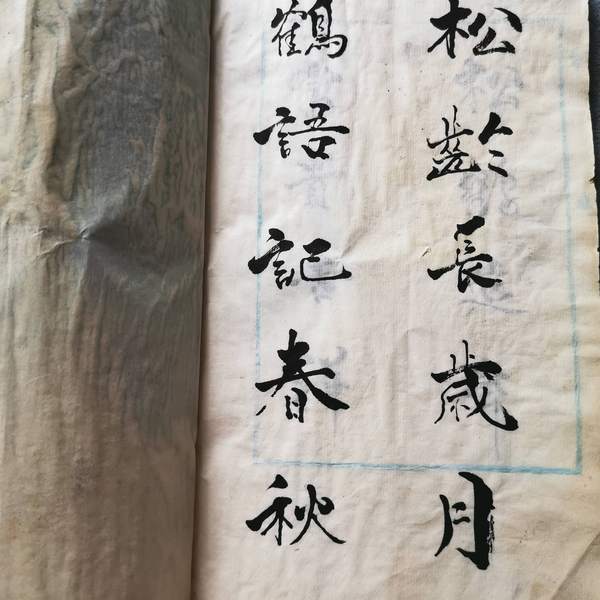 松齡長歳月
鶴語記春秋